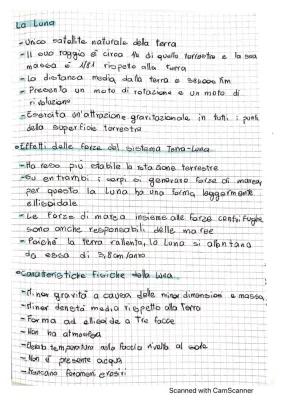 La Luna
- Unico satellite naturale della terra
- Il suo raggio è circa 1/4 di quello terrestre e la sua
massa è 1/81 rispetto alla terra
- La distanza media dalla terra è 384000 Km
- Presenta un moto di rotazione e un moto di
rivoluzione
- Esercita un'attrazione gravitazionale in tutti i punti
della superficie terrestre
• Effetti delle forze del sistema Terra-Luna
- Ha reso più stabile la rotazione terrestre
- Su entrambi i corpi si generano forze di marea,
per questo la Luna ha una forma leggermente
ellissoidale
- Le forze di marea insieme alle forze centrifughe
sono anche responsabili delle maree
- Poiché la terra rallenta, la Luna si allontana
da essa di 3,8 cm/anno
• Caratteristiche fisiche della luna
- Minor gravità a causa delle minor dimensioni e massa
- Minor densità media rispetto alla Terra
- Forma ad ellissoide a Tre facce
- Non ha atmosfera
temperatura nella faccia rivolta al sole
- Non è presente acqua
- Mancano fenomeni erosivi
Scanned with CamScanner